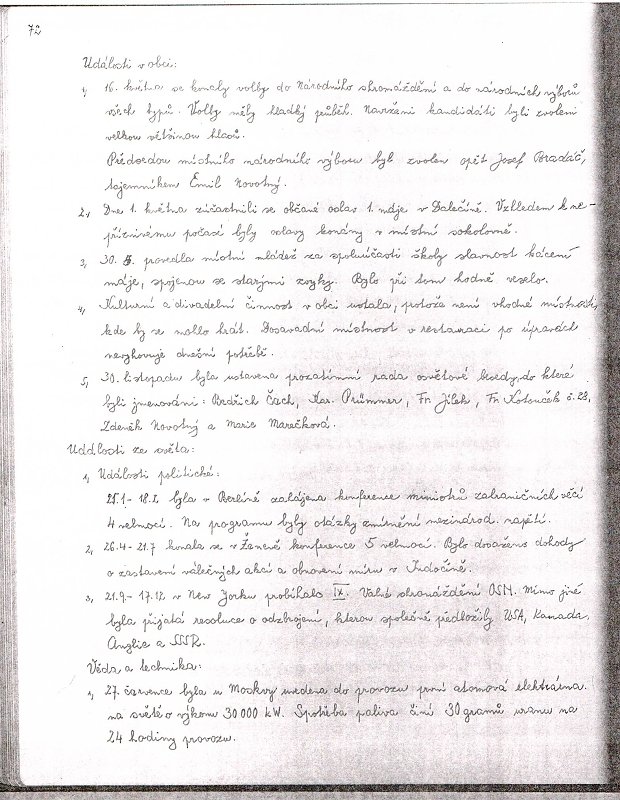 72
Události v obci:
1, 16. května se konaly volby do Národního shromáždění a do národních výborů
všech typů. Volby měly hladký průběh. Navržení kandidáti byli zvoleni
velkou většinou hlasů.
Předsedou místního národního výboru byl zvolen opět Josef Bradáč,
tajemníkem Emil Novotný.
2, Dne 1. května zúčastnili se občané oslav 1. máje v Dalečíně. Vzhledem k ne-
příznivému počasí byly oslavy konány v místní sokolovně.
3, 30. 5. provedla místní mládež za spoluúčasti školy slavnost kácení
máje, spojenou se starými zvyky. Bylo při tom hodně veselo.
4, Kulturní a divadelní činnost v obci ustala, protože není vhodné místnosti,
kde by se mohlo hrát. Dosavadní místnost v restauraci po úpravách
nevyhovuje dnešní potřebě.
5, 30. listopadu byla ustavena prozatímní rada osvětové besedy, do které
byli jmenováni: Bedřich Čech, Kar. Prümmer, Fr. Jílek, Fr. Kotouček č. 28,
Zdeněk Novotný a Marie Marečková.
Události ze světa:
1, Události politické:
25.1 - 18.2. byla v Berlíně zahájena konference ministrů zahraničních věcí
4 velmocí. Na programu byly otázky zmírnění mezinárod. napětí.
2, 26.4 - 21.7 konala se v Ženevě konference 5 velmocí. Bylo dosaženo dohody
o zastavení válečných akcí a obnovení míru v Indočíně.
3, 21.9 - 17.12. v New Yorku probíhalo IX. Valné shromáždění OSN. Mimo jiné
byla přijatá resoluce o odzbrojení, kterou společně předložily USA, Kanada,
Anglie a SSSR.
Věda a technika:
1, 27. července byla u Moskvy uvedena do provozu první atomová elektrárna
na světě o výkonu 30 000 kW. Spotřeba paliva činí 30 gramů uranu na
24 hodiny provozu.